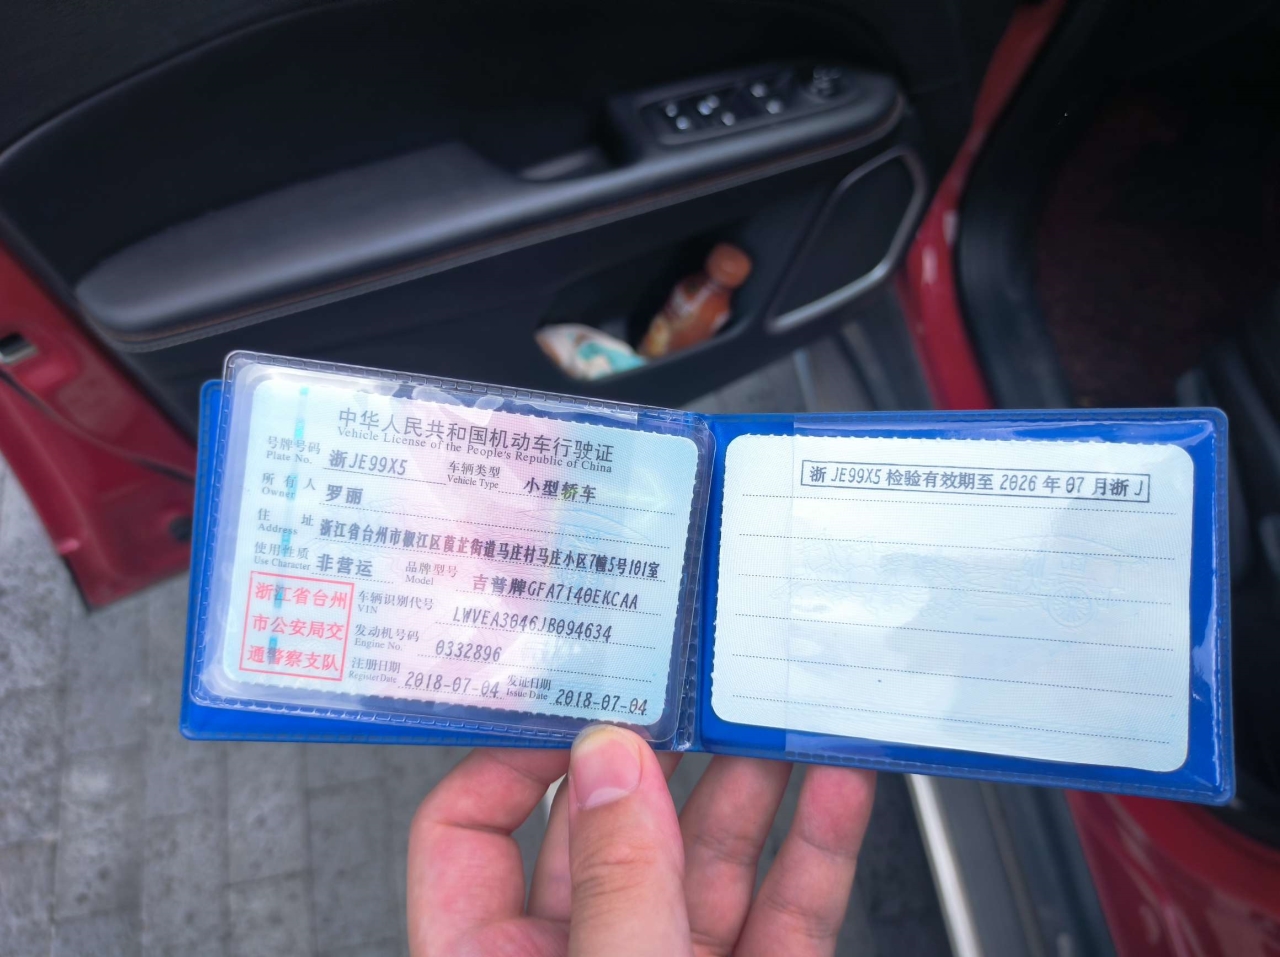 中华人民共和国机动车行驶证
Vehicle License of the People's Republic of China
号牌号码 浙JE99X5 车辆类型 小型轿车
Plate No. Vehicle Type
所有人 罗丽
Owner
住址 浙江省台州市椒江区葭芷街道马庄村马庄小区7幢5号101室
Address
使用性质 非营运 品牌型号 吉普牌GFA7140EKCAA
Use Character Model
浙江省台州
市公安局交
通警察支队
车辆识别代号 LWVEA3046JB094634
VIN
发动机号码 0332896
Engine No.
注册日期 2018-07-04 发证日期 2018-07-04
Register Date Issue Date
浙JE99X5检验有效期至2026年07月浙J